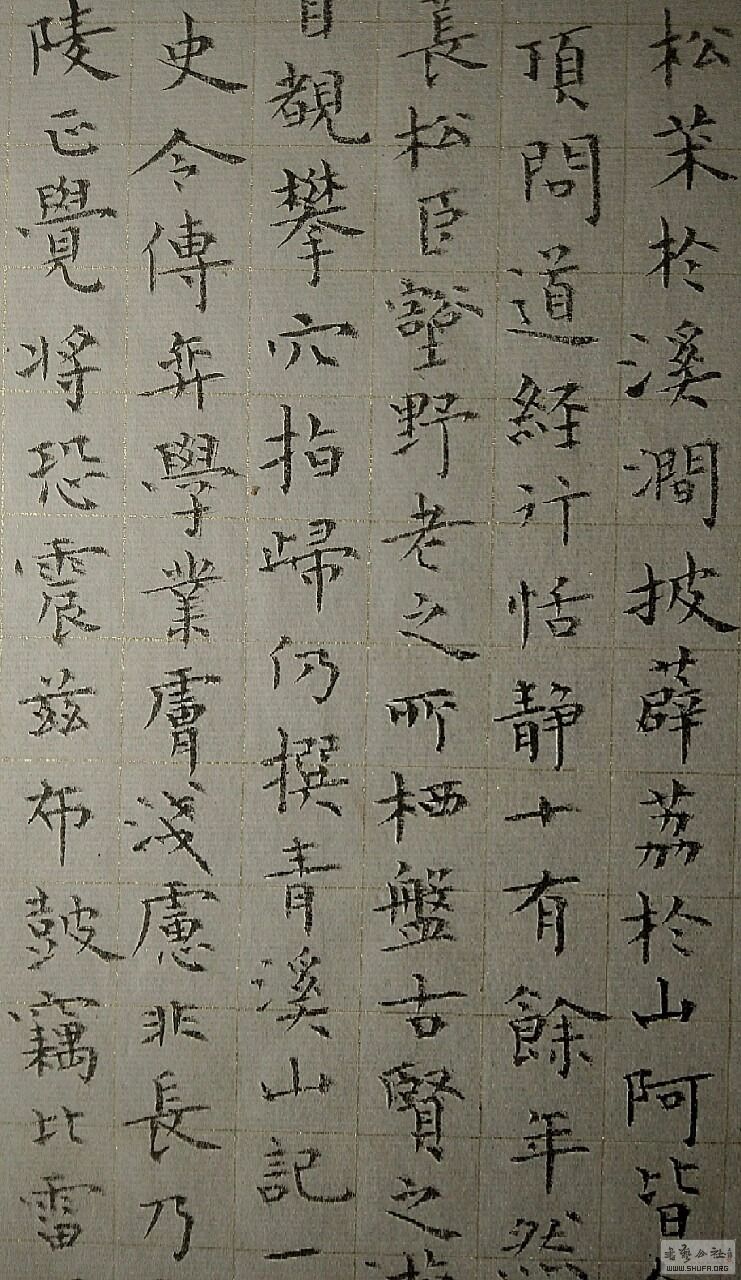 松葉於溪澗披薜荔於山阿皆
頂問道經行恬靜十有餘年然
長松巨壑野老之所栖盤古賢之遊
目覩攀穴指歸仍撰青溪山記一
史令傳弈學業膚淺識慮非長乃
陵正覺將恐震茲布鼓竊比雷
書藝公社
WWW.SHUFA.ORG